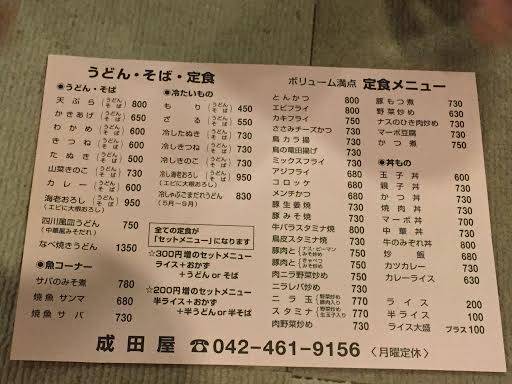 うどん・そば・定食
◉うどん・そば
天ぷら(うどん そば) 800
かきあげ(うどん そば) 650
わかめ(うどん そば) 600
きつね(うどん そば) 600
たぬき(うどん そば) 500
山菜きのこ(うどん そば) 730
カレー(うどん そば) 600
海老おろし(うどん そば) 950
(エビに大根おろし)
四川風皿うどん 750
(中華風みそだれ)
なべ焼きうどん 1350
◉魚コーナー
サバのみそ煮 780
焼魚サンマ 680
焼魚サバ 730
◉冷たいもの
もり(うどん そば) 450
ざる(うどん そば) 550
冷したぬき(うどん そば) 730
冷しきつね(うどん そば) 730
冷しきのこ(うどん そば) 730
冷し海老おろし(うどん そば) 950
(エビに大根おろし)
冷しゃぶごまだれうどん 830
(5月〜9月)
全ての定食が
「セットメニュー」になります
☆300円増のセットメニュー
ライス+おかず
+うどん or そば
☆200円増のセットメニュー
半ライス+おかず
+半うどん or 半そば
ボリューム満点 定食メニュー
とんかつ 800
エビフライ 800
カキフライ 750
ささみチーズかつ 730
鳥カラ揚 730
鳥の竜田揚げ 730
ミックスフライ 730
アジフライ 680
コロッケ 680
メンチかつ 680
豚生姜焼 730
豚みそ焼 730
牛バラスタミナ焼 780
鳥皮スタミナ焼 730
豚肉と(ナス・ピーマン みそ炒め) 750
豚肉と(キャベツ みそ炒め) 730
肉ニラ野菜炒め 730
ニラレバ炒め 730
ニラ玉 770
スタミナ 770
肉野菜炒め 730
豚もつ煮 730
野菜炒め 630
ナスのひき肉炒め 730
マーボ豆腐 730
かつ煮 750
◉丼もの
玉子丼 600
親子丼 730
かつ丼 730
焼肉丼 730
マーボ丼 700
中華丼 730
牛のみぞれ丼 800
炒飯 680
カツカレー 730
カレーライス 630
ライス 200
半ライス 100
ライス大盛 プラス100
成田屋 ☎042-461-9156 〈月曜定休〉